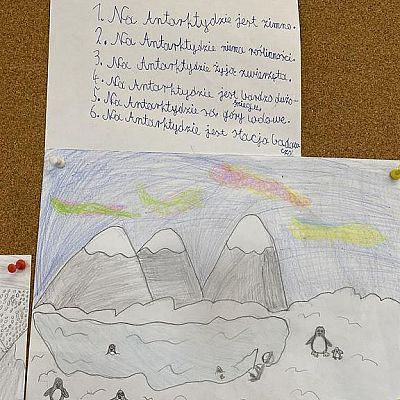 1. Na Antarktydzie jest zimno.
2. Na Antarktydzie niema roślinności.
3. Na Antarktydzie żyją zwierzęta.
4. Na Antarktydzie jest bardzo dużo
śniegu.
5. Na Antarktydzie są góry lodowe.
6. Na Antarktydzie jest stacja badaw
cza.